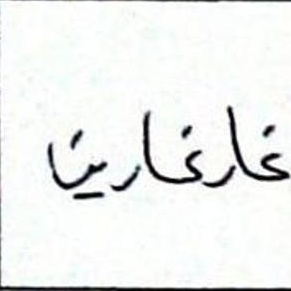 غارغارينا